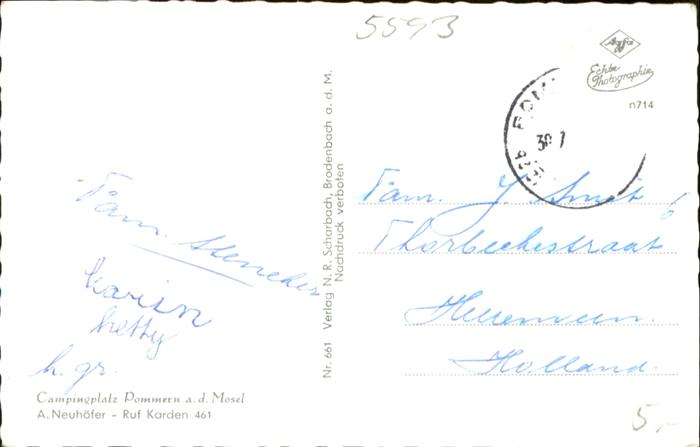 5593
Agfa
Echte
Photographie
n714
POMM
30 7
Fam. Y. Smit
6
Thorbeckestraat
Heerenveen.
Holland.
Fam. Steneker
Karin
Hetty
h. gr.
Campingplatz Pommern a. d. Mosel
A. Neuhöfer - Ruf Karden 461
Nr. 661 Verlag N. R. Scharbach, Brodenbach a. d. M.
Nachdruck verboten
5,-